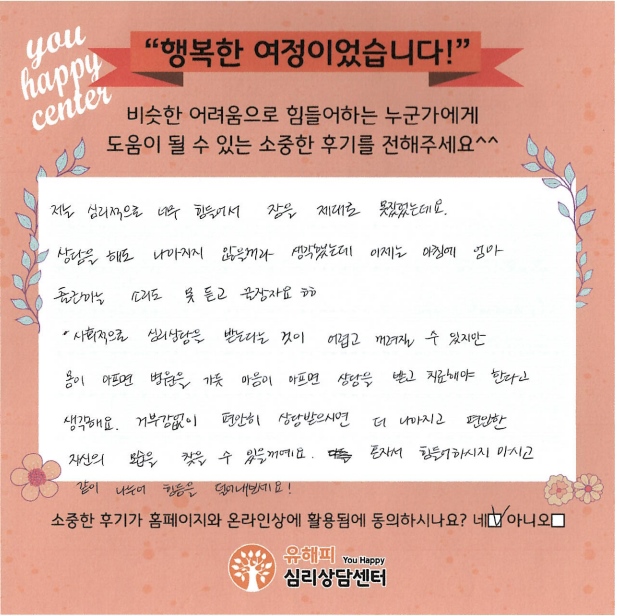 you
happy
center
“행복한 여정이었습니다!”
비슷한 어려움으로 힘들어하는 누군가에게
도움이 될 수 있는 소중한 후기를 전해주세요^^
저는 심리적으로 너무 힘들어서 잠을 제대로 못잤었는데요.
상담을 해도 나아지지 않을꺼라 생각했는데 이제는 아침에 엄마
출근하는 소리도 못 듣고 꿀잠자요 ㅎㅎ
사회적으로 심리상담을 받는다는 것이 어렵고 꺼려질 수 있지만
몸이 아프면 병원을 가듯 마음이 아프면 상담을 받고 치료해야 한다고
생각해요. 거부감없이 편안히 상담받으시면 더 나아지고 편안한
자신의 모습을 찾을 수 있을꺼에요. 혼자서 힘들어하시지 마시고
같이 나누어 힘듦을 덜어내보세요!
소중한 후기가 홈페이지와 온라인상에 활용됨에 동의하시나요? 네☑ 아니오☐
유해피 You Happy
심리상담센터